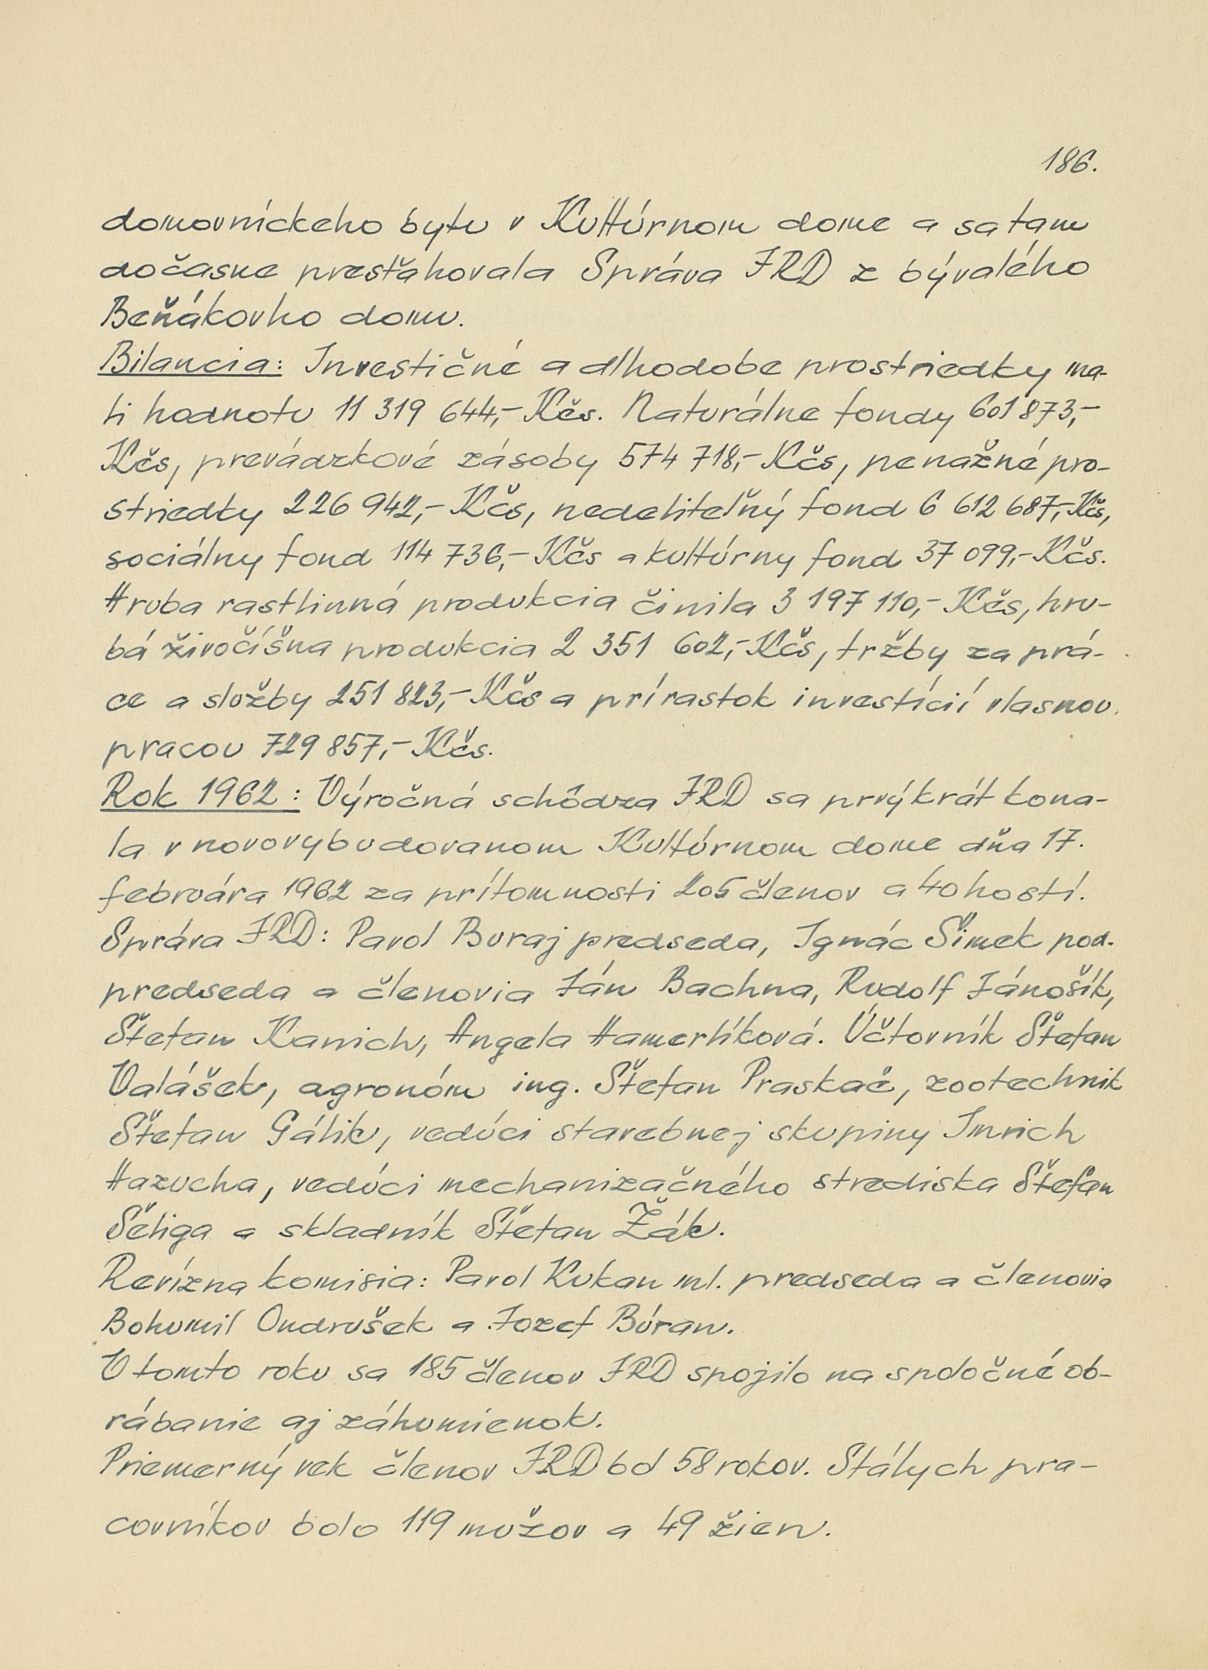 186.
domovníckeho bytu v Kultúrnom dome a sa tam
dočasne presťahovala Správa JRD z bývalého
Beňákovho domu.
Bilancia: Investičné a dlhodobe prostriedky ma-
li hodnotu 11 319 644,- Kčs. Naturálne fondy 601 873,-
Kčs, prevádzkové zásoby 574 718,- Kčs, penažné pro-
striedky 226 942,- Kčs, nedeliteľný fond 6 612 687,- Kčs,
sociálny fond 114 736,- Kčs a kultúrny fond 37 099,- Kčs.
Hruba rastlinná produkcia činila 3 197 110,- Kčs, hru-
bá živočíšna produkcia 2 351 602,- Kčs, tržby za prá-
ce a služby 251 823,- Kčs a prírastok investícií vlasnou
pracou 729 857,- Kčs.
Rok 1962: Výročná schôdza JRD sa prvýkrát kona-
la v novovybudovanom Kultúrnom dome dňa 17.
februára 1962 za prítomnosti 205 členov a 40 hostí.
Správa JRD: Pavol Buraj predseda, Ignác Šimek pod-
predseda a členovia Ján Bachna, Rudolf Jánošík,
Štefan Kanich, Angela Hamerlíková. Účtovník Štefan
Valášek, agronóm ing. Štefan Praskač, zootechnik
Štefan Gálik, vedúci starebnej skupiny Imrich
Hazucha, vedúci mechanizačného strediska Štefan
Šeliga a skladník Štefan Žák.
Revízna komisia: Pavol Kukan ml. predseda a členovia
Bohumil Ondrušek a Jozef Búran.
V tomto roku sa 185 členov JRD spojilo na spoločné ob-
rábanie aj záhumienok.
Priemerný vek členov JRD bol 58 rokov. Stálych pra-
covníkov bolo 119 mužov a 49 žien.